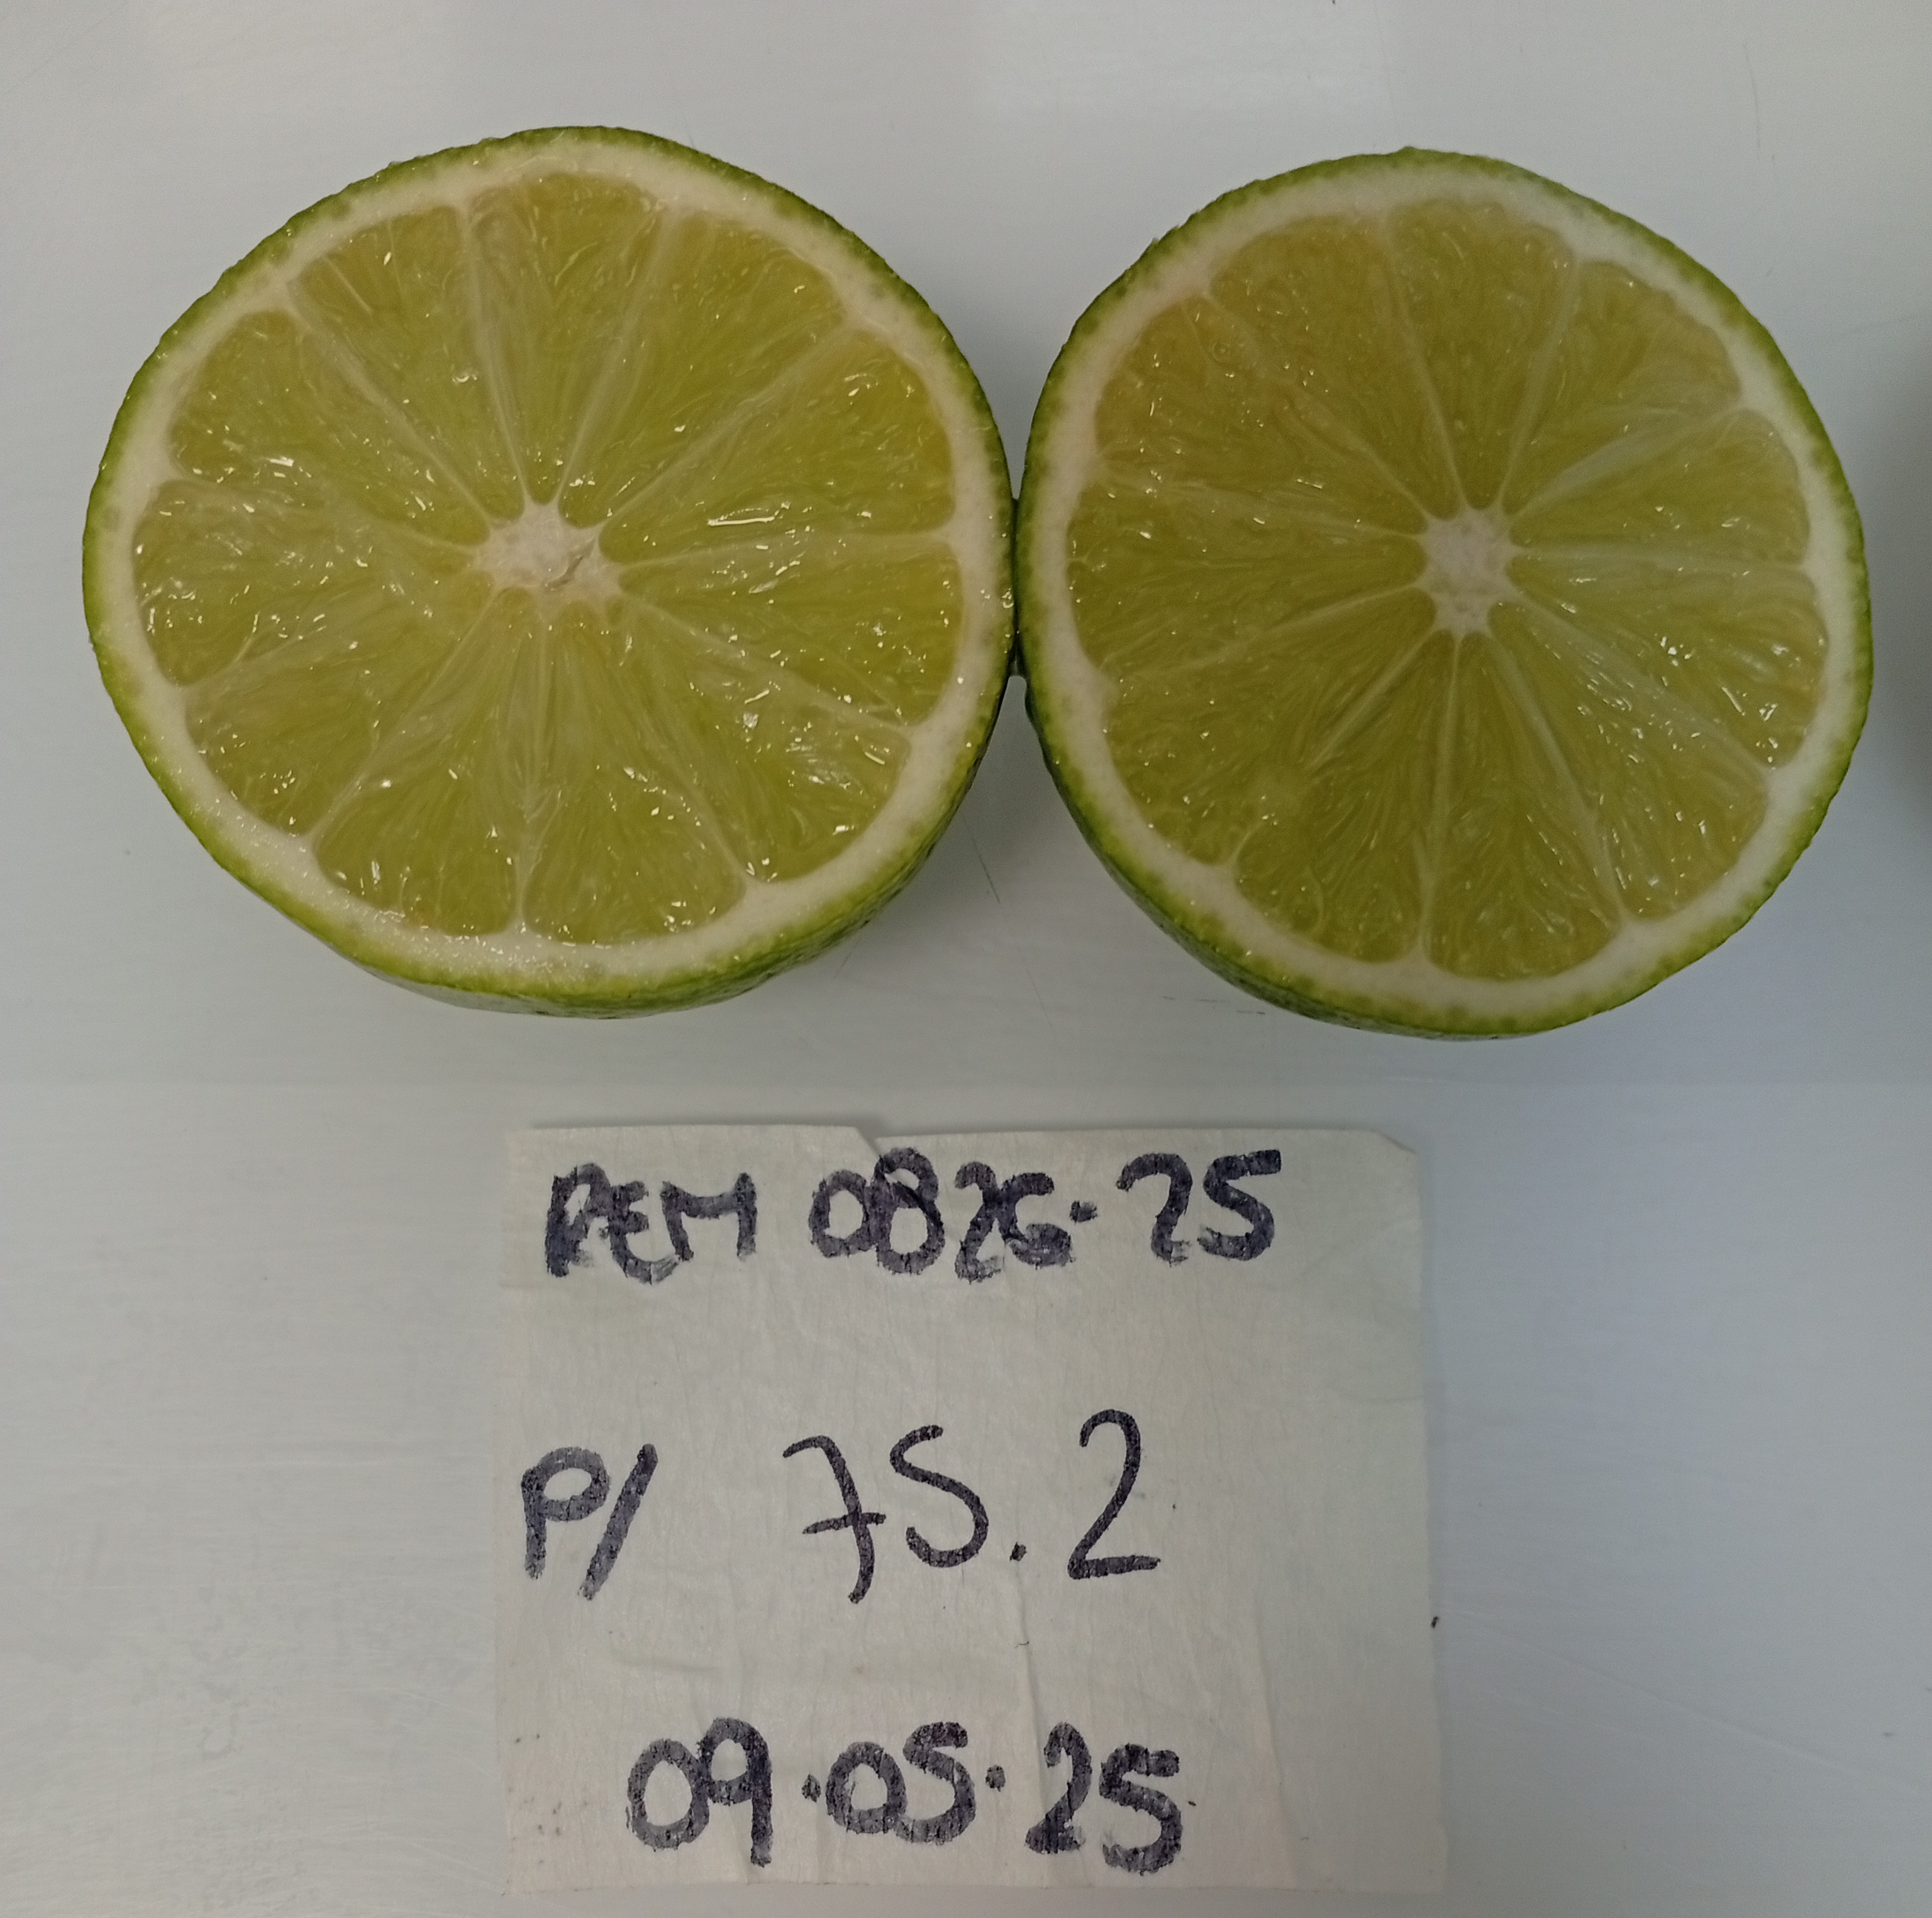 REM 0826-25
P/ 75.2
09.05.25